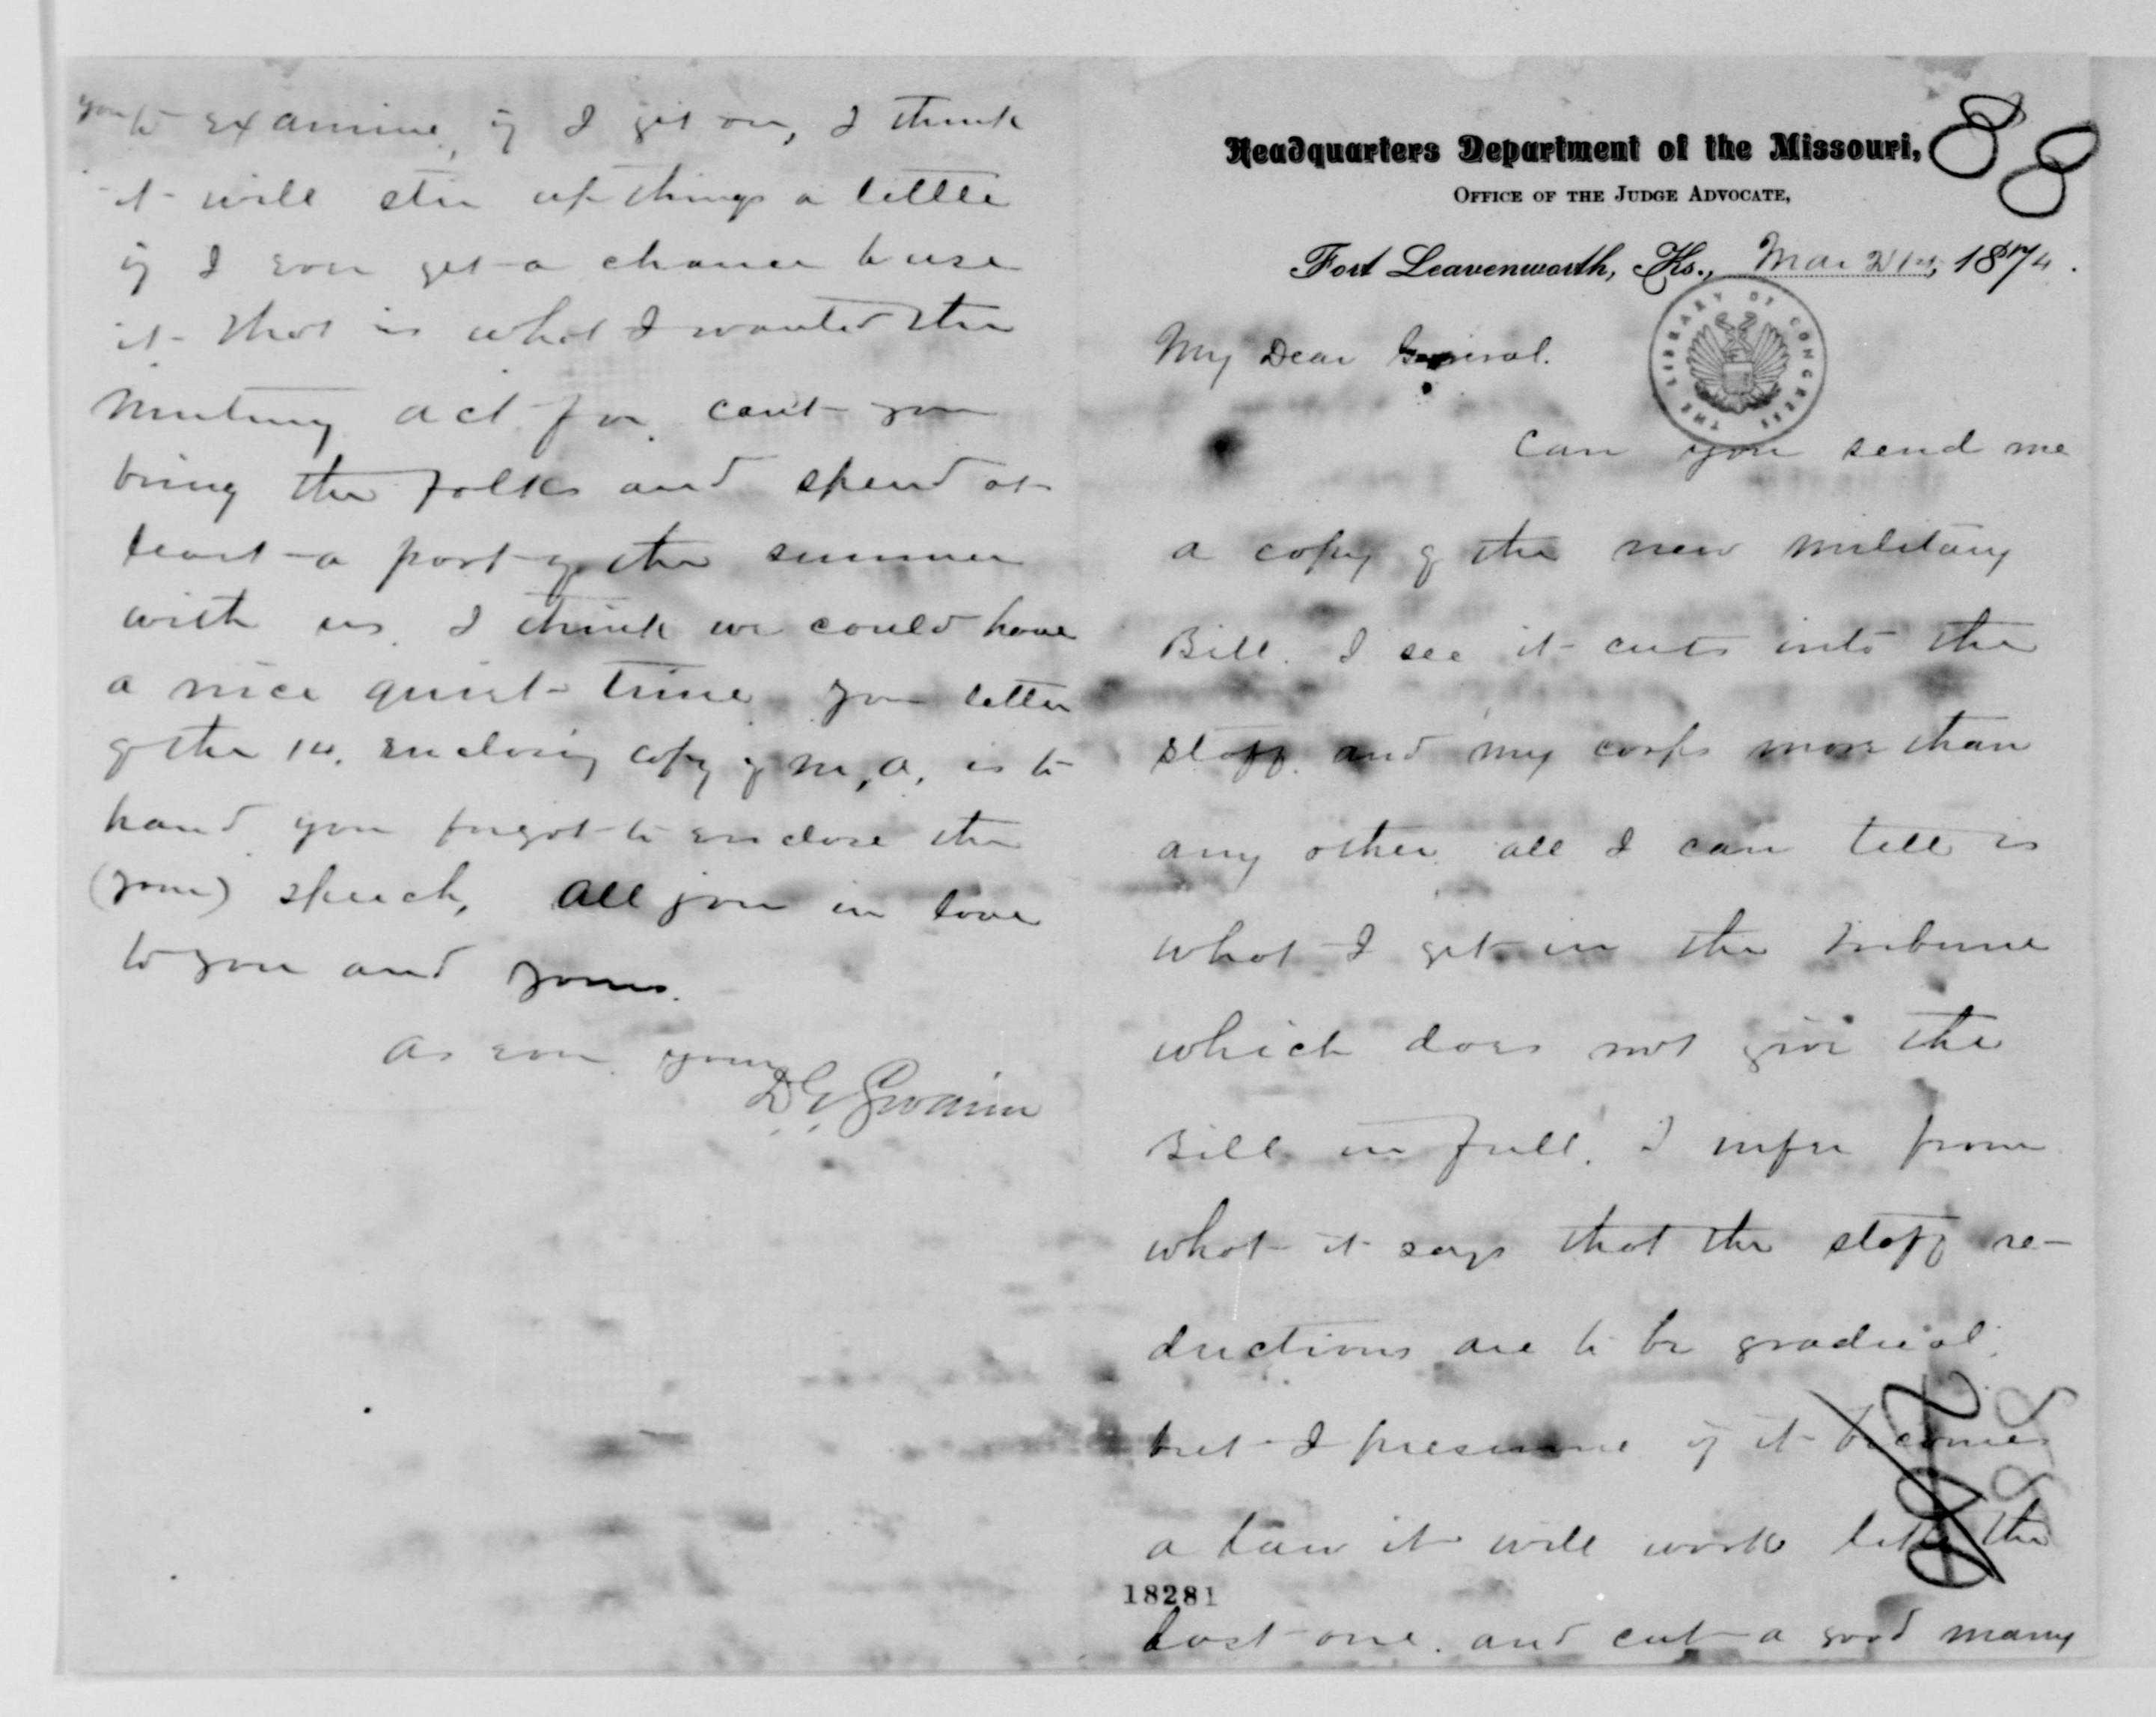 you to examine, if I get on, I think
it will stir up things a little
if I ever get a chance to use
it. that is what I wanted the
mutiny act for. can't you
bring the folks and spend at
least a part of the summer
with us. I think we could have
a nice quiet time. your letter
of the 14. enclosing copy of M, A, is to
hand you forgot to enclose the
(your) speech, All join in love
to you and yours.
As ever yours
D G Swaim
Headquarters Department of the Missouri,
Office of the Judge Advocate,
Fort Leavenworth, Ks., Mar 21st, 1874.
88
THE LIBRARY OF CONGRESS
My Dear General.
Can you send me
a copy of the new military
Bill. I see it cuts into the
staff and my corps more than
any other all I can tell is
what I get in the tribune
which does not give the
Bill in full. I infer from
what it says that the staff re-
ductions are to be gradual.
but I presume if it becomes
a law it will work like the
last one. and cut a good many
18281